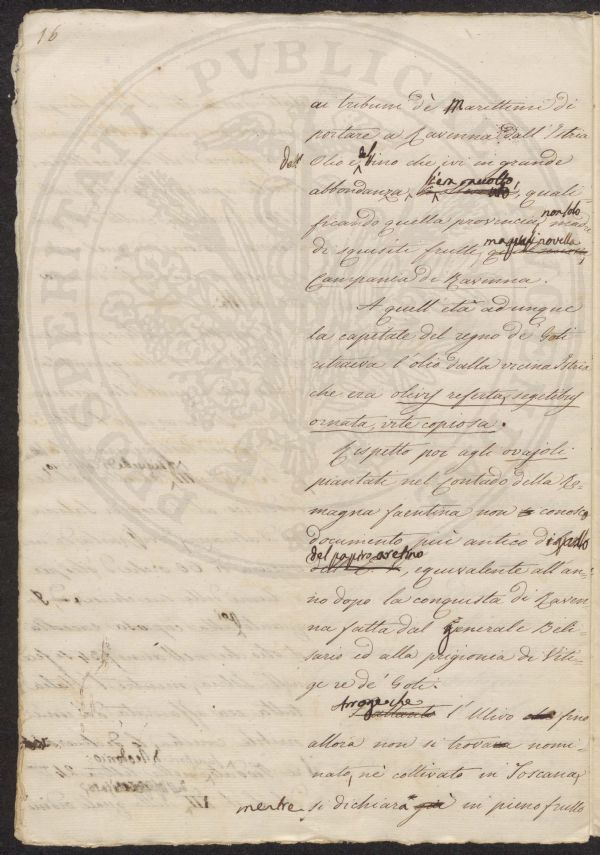 16
PVBLICAE
PROSPERITATI
ai tribuni dè Marittimi di
portare a Ravenna dall'Istria
dell'
Olio e del vino che ivi in grande
abbondanza s'era raccolto, quali-
ficando quella provincia non solo madre
di squisiti frutti, ma quasi novella
Campania di Ravenna.
A quell'età adunque
la capitale del regno de' Goti
ritraeva l'olio dalla vicina Istria
che era olivis referta, segetibus
ornata, vite copiosa.
Rispetto poi agli ovajoli
piantati nel Contado della Ro-
magna faentina non conosco
documento più antico di quello
del papiro aretino
, equivalente all'an-
no dopo la conquista di Raven-
na fatta dal generale Beli-
sario ed alla prigionia di Viti-
ge re de' Goti.
Arroge che l'Ulivo fino
allora non si trova nomi-
nato, nè coltivato in Toscana,
mentre si dichiara in pieno frutto